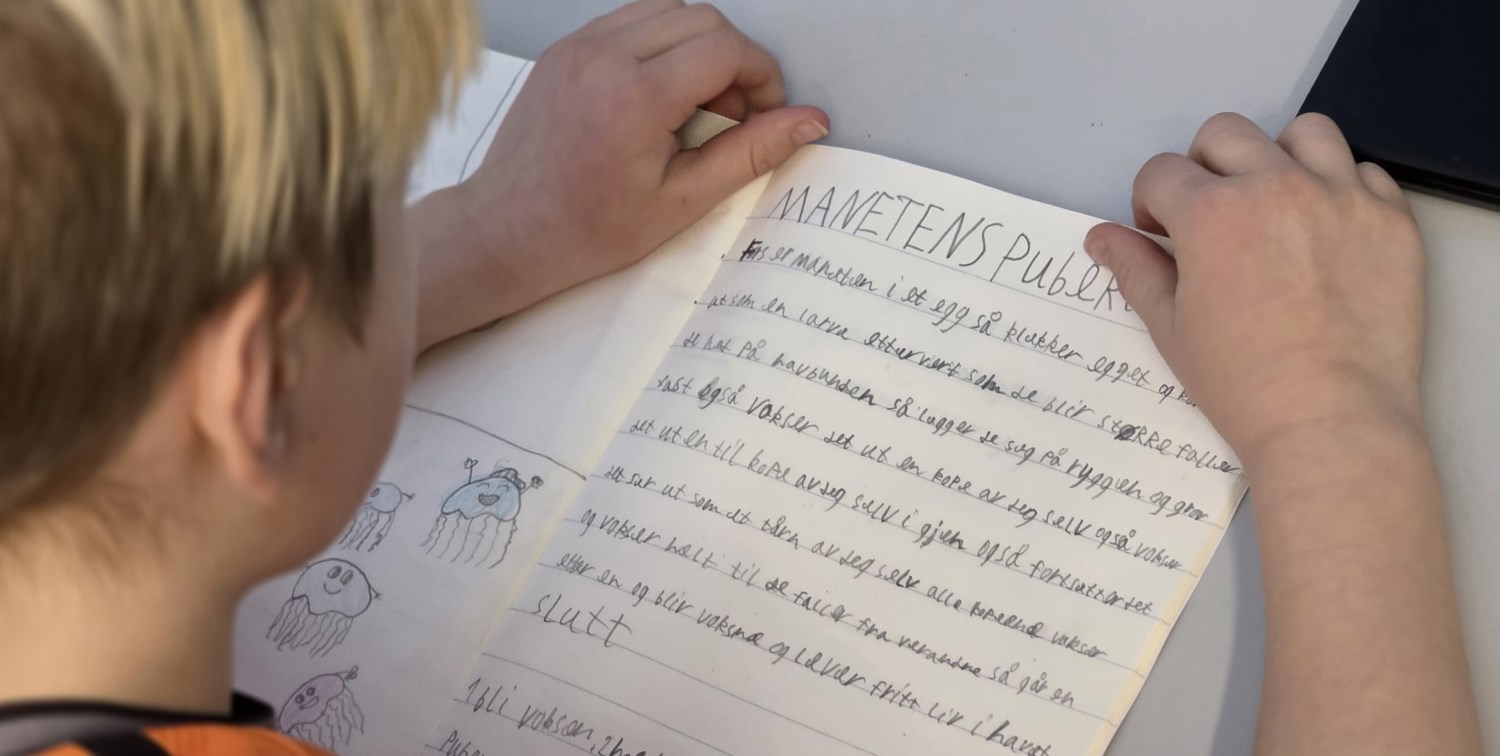 MANETENS PubeR
Føs er maneten i et egg så klukker egget og
at som en larva etturvert som de blir støRRe faller
de ned på havbunden så lugger de sug på ryggien og gror
fast også vokser det ut en kope av seg selv også vokser
det ut en til kope av seg selv i gjen også fortsatter det
det sur ut som et tårn av seg selv alle kopeene vokser
og vokser helt til de faller fra verandre så går en
etter en og blir voksne og læver fritt liv i havet
slutt
1 bli voksen, 2
Pube